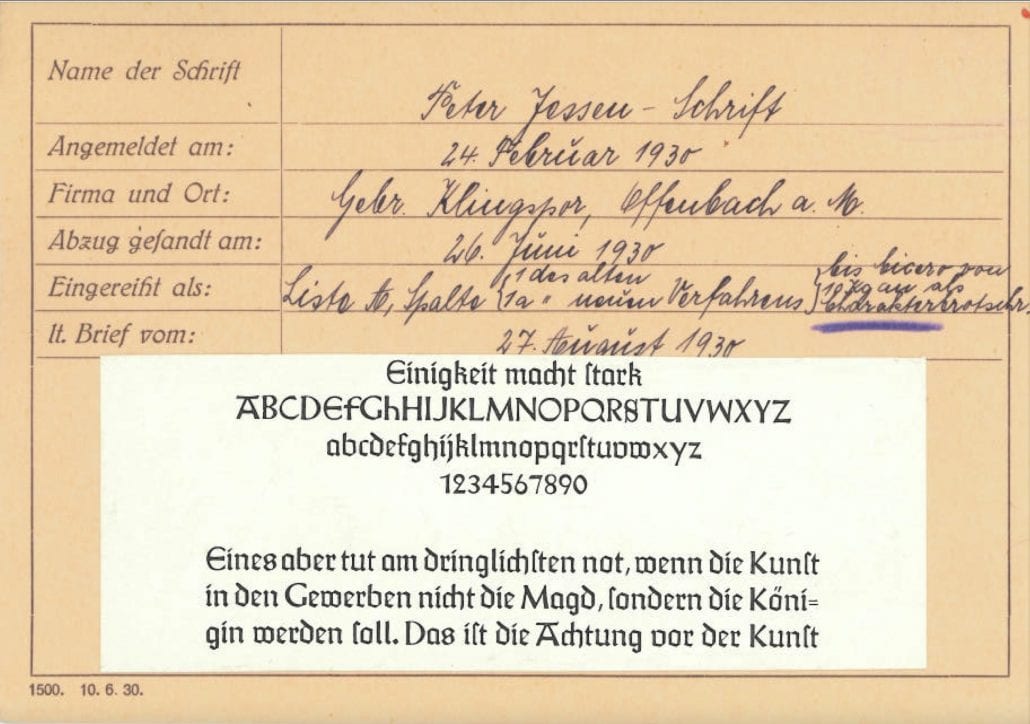 Name der Schrift
Peter Jessen - Schrift
Angemeldet am:
24. Februar 1930
Firma und Ort:
Gebr. Klingspor, Offenbach a. M.
Abzug gesandt am:
26. Juni 1930
Eingereiht als:
Liste A, Spalte { 1 des alten
1a " neuen Verfahrens } bis cicero von
als
lt. Brief vom:
27. August 1930
Einigkeit macht ſtark
ABCDEfGhHIJKLMNOPQRSTUVWXYZ
abcdefghijklmnopqrſtuvwxyz
1234567890
Eines aber tut am dringlichſten not, wenn die Kunſt
in den Gewerben nicht die Magd, ſondern die Köni=
gin werden ſoll. Das iſt die Achtung vor der Kunſt
1500. 10. 6. 30.